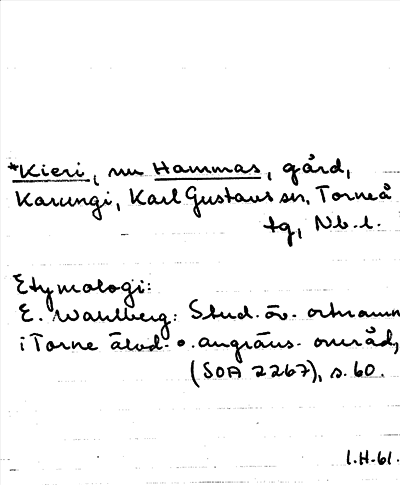 *Kieri, nu Hammas, gård,
Karungi, Karl Gustavs sn, Torneå
tg, Nb. l.
Etymologi:
E. Wahlberg: Stud. öv. ortnamn
i Torne älvd. o. angräns. områd,
(SOA 2267), s. 60.
I.H-61.